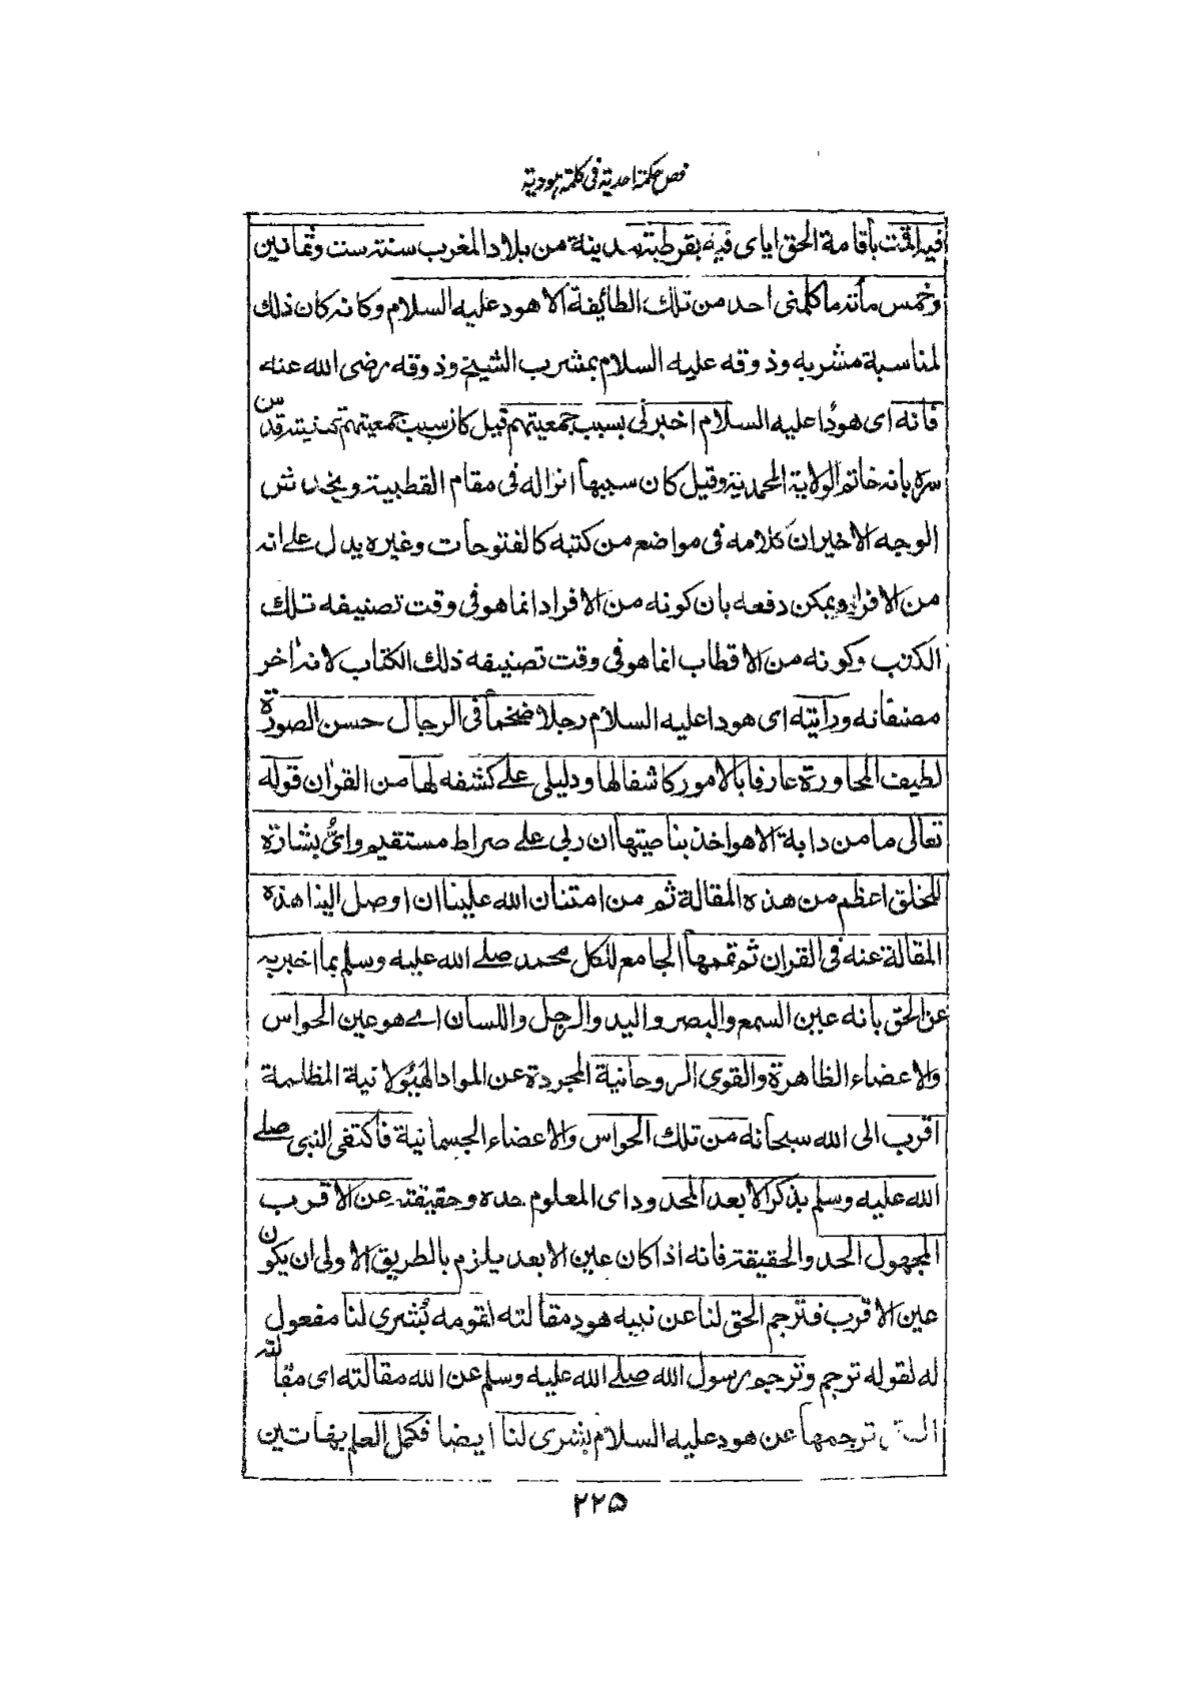 فص حكمة احدية فى كلمة هودية
فيه اقمت باقامة الحق اياى فيه بقرطبة مدينة من بلاد المغرب سنة ست وثمانين
وخمس مائة ما كلمنى احد من تلك الطائفة الا هود عليه السلام وكانه كان ذلك
لمناسبة مشربه وذوقه عليه السلام بمشرب الشيخ وذوقه رضى الله عنه
فانه اى هودا عليه السلام اخبرنى بسبب جمعيتهم قيل كان سبب جمعيتهم تهنيته قدس
سره بانه خاتم الولاية المحمدية وقيل كان سببها انزاله فى مقام القطبية ويخدش
الوجه الاخير ان كلامه فى مواضع من كتبه كالفتوحات وغيره يدل على انه
من الافراد ويمكن دفعه بان كونه من الافراد انما هو فى وقت تصنيفه تلك
الكتب وكونه من الاقطاب انما هو فى وقت تصنيفه ذلك الكتاب لانه اخر
مصنفاته ورايته اى هودا عليه السلام رجلا ضخما فى الرجال حسن الصورة
لطيف المحاورة عارفا بالامور كاشفا لها ودليلى على كشفه لها من القران قوله
تعالى ما من دابة الا هو اخذ بناصيتها ان ربى على صراط مستقيم واىُّ بشارة
للخلق اعظم من هذه المقالة ثم من امتنان الله علينا ان اوصل الينا هذه
المقالة عنه فى القران ثم تممها الجامع للكل محمد صلے الله عليه وسلم بما اخبر به
عن الحق بانه عين السمع والبصر واليد والرجل واللسان اے هو عين الحواس
والاعضاء الظاهرة والقوى الروحانية المجردة عن المواد الهَيُولانية المظلمة
اقرب الى الله سبحانه من تلك الحواس والاعضاء الجسمانية فاكتفى النبى صلے
الله عليه وسلم بذكر الابعد المحدود اى المعلوم حده وحقيقته عن الاقرب
المجهول الحد والحقيقة فانه اذا كان عين الابعد يلزم بالطريق الاولى ان يكون
عين الاقرب فترجم الحق لنا عن نبيه هود مقالته لقومه بُشرى لنا مفعول
له لقوله ترجم وترجم رسول الله صلے الله عليه وسلم عن الله مقالته اى مقالته
ترجمها عن هود عليه السلام بشرى لنا ايضا فكمل العلم بهاتين
٢٢٥